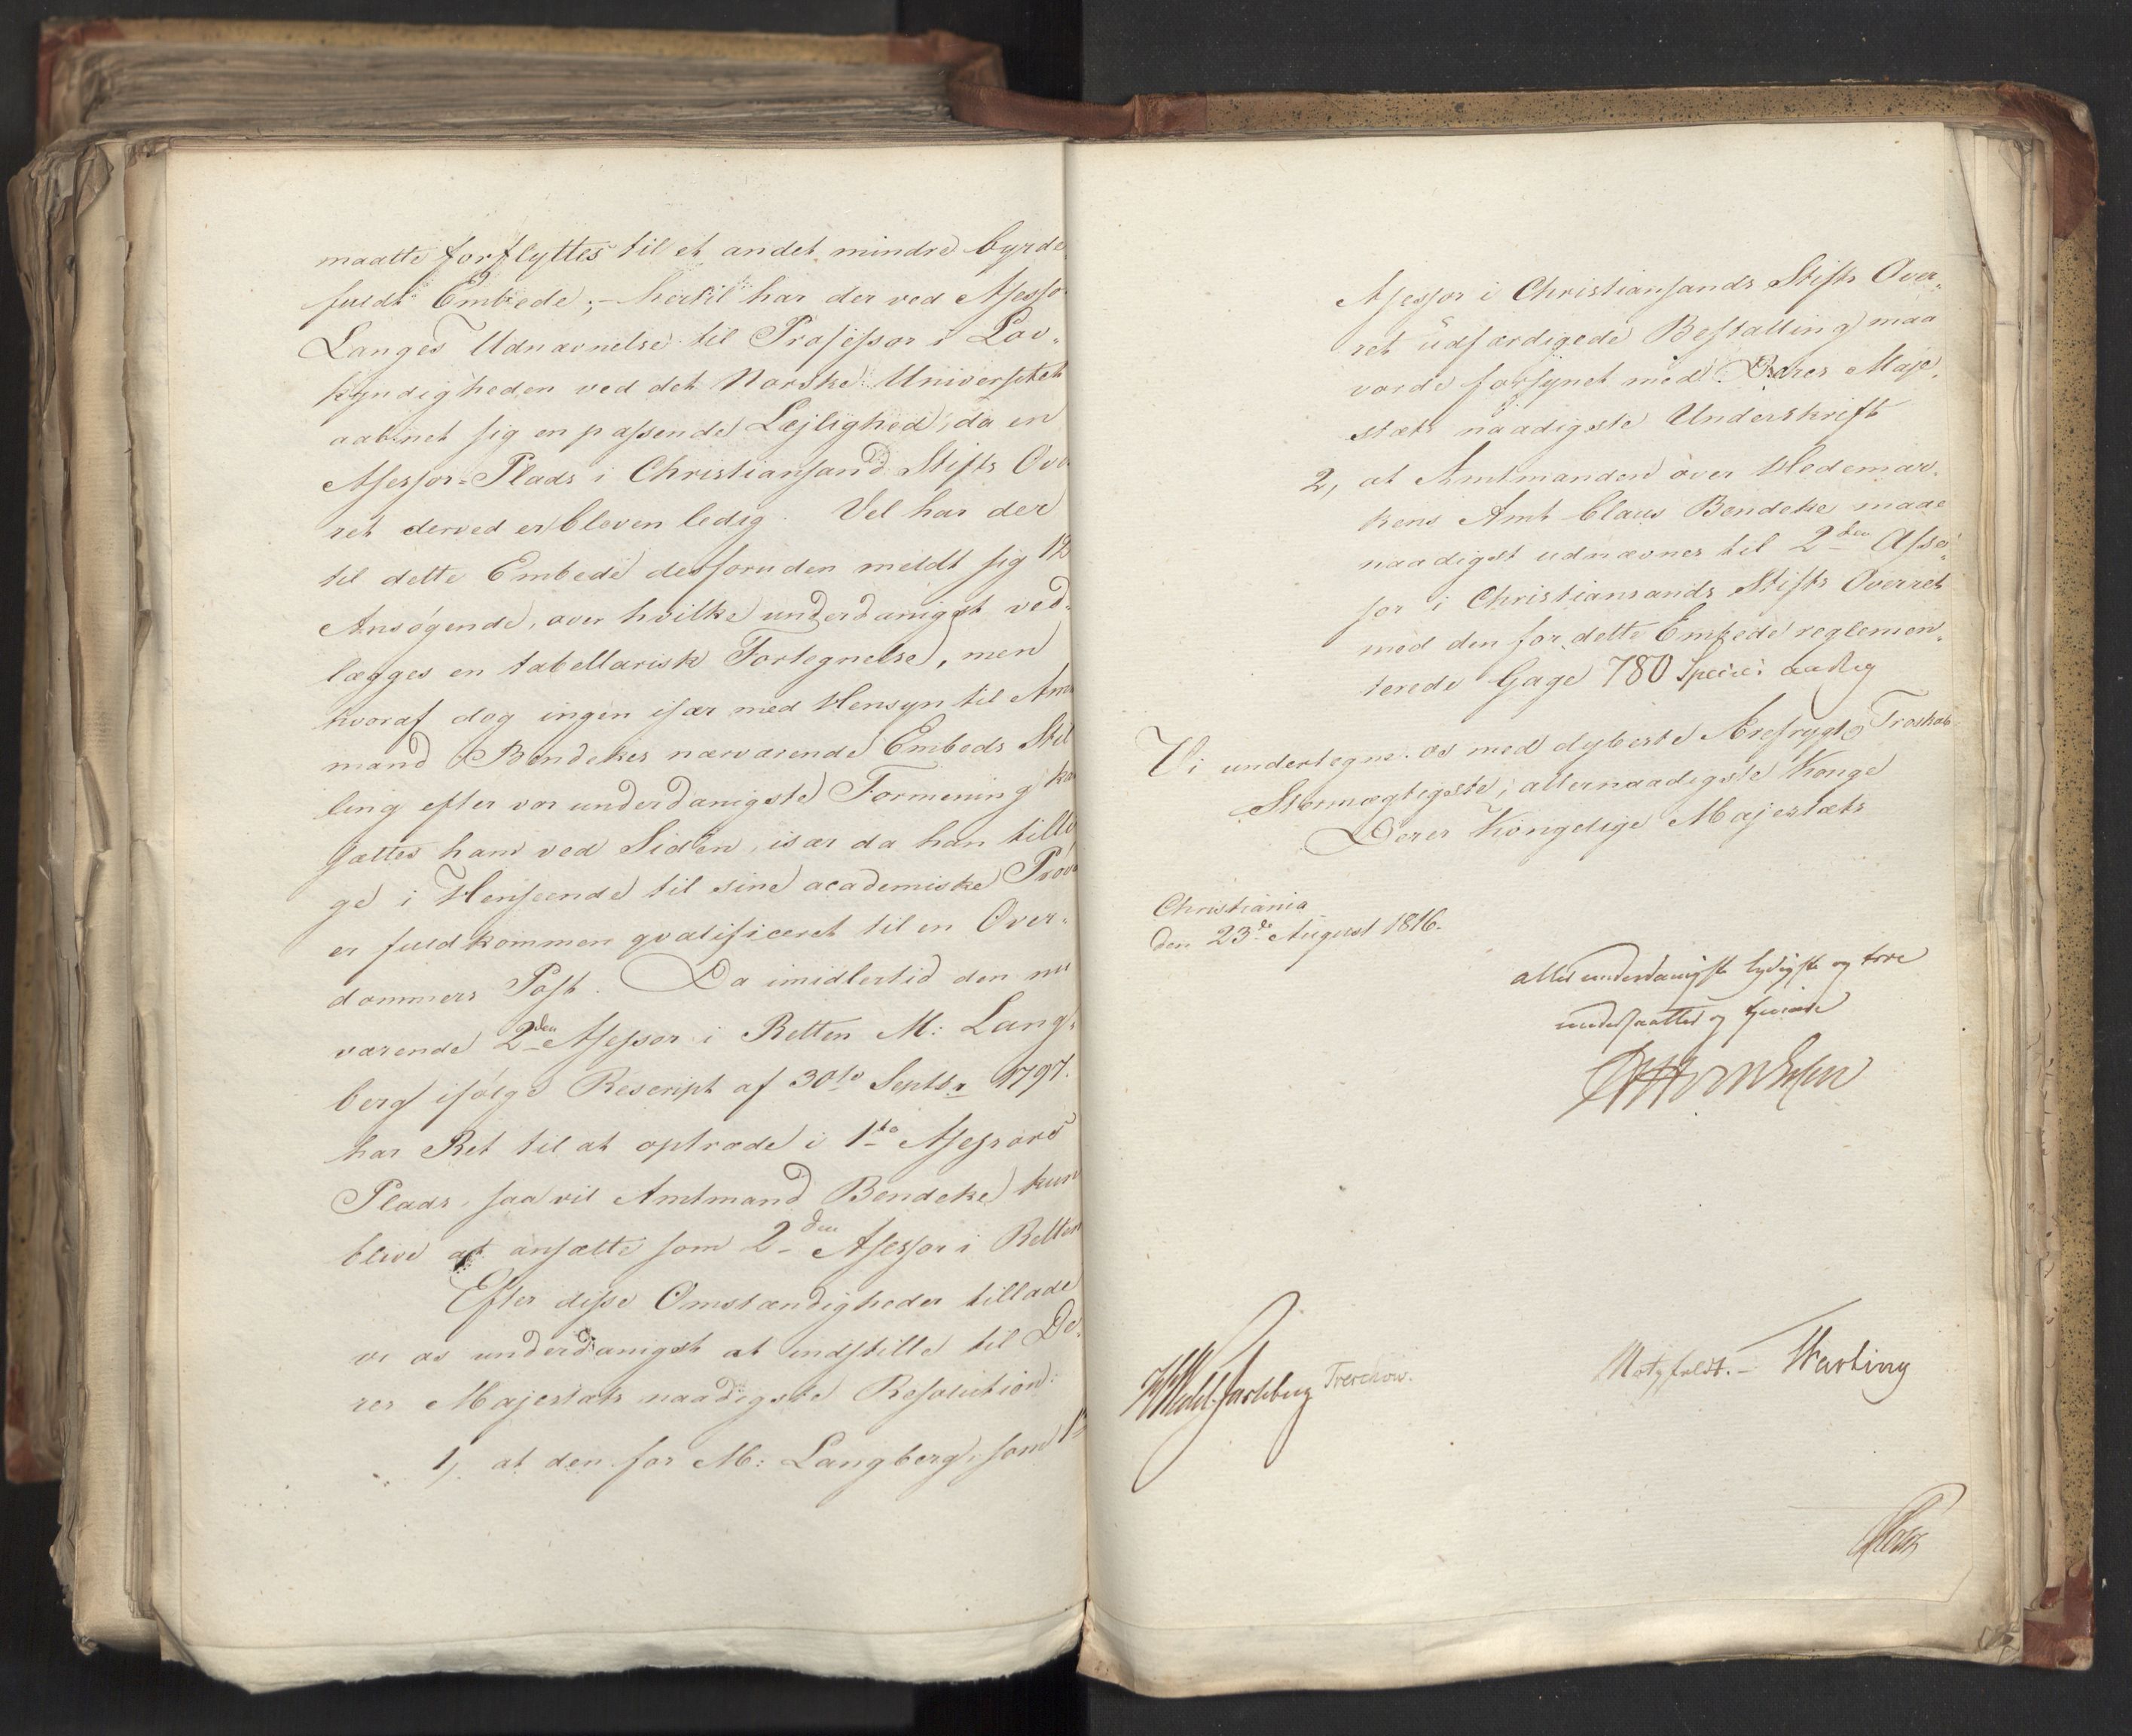 maatte forflyttes til et andet mindre byrde
fuldt Embede; – hertil har der ved Assesso
Langes Udnævnelse til Professor i Lov-
kyndigheden ved det Norske Universitet
aabnet sig en passende Lejlighed, da en
Assessor-Plads i Christiansand Stifts Ove
ret derved er bleven ledig. Vel har der
til dette Embede desforuden meldt sig 12
Ansøgende, over hvilke underdanigst ved-
lægges en tabellarisk Fortegnelse, men
hvoraf dog ingen især med Hensyn til Amt
mand Bendekes nærværende Embeds Stil
ling efter vor underdanigste Formening ka
sættes ham ved Siden, især da han tilli
ge i Henseende til sine academiske Prøve
er fuldkommen qvalificeret til en Over-
dommers Post. Da imidlertid den nu
værende 2den Assessor i Retten M: Lang-
berg ifølge Rescript af 30te Septbr 1797.
har Ret til at optræde i 1ste Assessors
Plads, saa vil Amtmand Bendeke kun
blive at ansætte som 2den Assessor i Retten
Efter disse Omstændigheder tillade
vi os underdanigst at indstille til De-
res Majestæts naadigste Resolution:
1, at den for M: Langberg, som 1ste
Assessor i Christiansands Stifts Over-
ret udfærdigede Bestalling maa
vorde forsynet med Deres Maje-
stæts naadigste Underskrift
2, at Amtmanden over Hedemar-
kens Amt Claus Bendeke maae
naadigst udnævnes til 2den Asses-
sor i Christiansands Stifts Overret
med den for dette Embede reglemen-
terede Gage 780 Species aarlig
Vi undertegne os med dybeste Ærefrygt og Troskab
Stormægtigste, allernaadigste Konge
Deres Kongelige Majestæts
Christiania
den 23de August 1816.
allerunderdanigste lydigste og troe
undersaatter og tjenere
Wedel-Jarlsberg Treschow. Motzfeldt. – Warberg